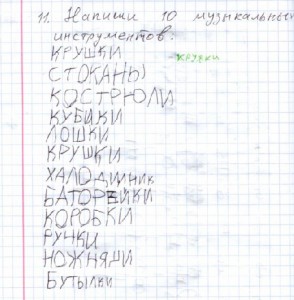 11. Напиши 10 музыкальных
инструментов:
КРУШКИ кружки
СТОКАНЫ
КОСТРЮЛИ
КУБИКИ
ЛОШКИ
КРУШКИ
ХАЛОДИННИК
БАТОРЕЙКИ
КОРОБКИ
РУЧКИ
НОЖНЯДИ
БУТЫЛКИ